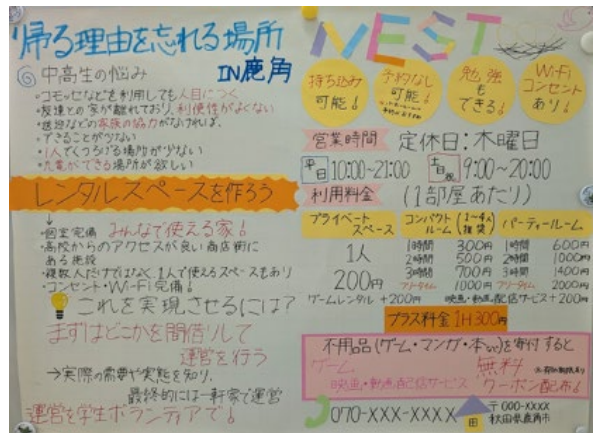 帰る理由を忘れる場所
IN鹿角
中高生の悩み
・コモッセなどを利用しても人目につく
・友達との家が離れており、利便性がよくない
・送迎などの家族の協力がなければ、
できることが少ない
・1人でくつろげる場所が少ない
・充電ができる場所が欲しい
レンタルスペースを作ろう
↓
・個室完備 みんなで使える家!
・高校からのアクセスが良い商店街に
ある施設
・複数人だけではなく1人で使えるスペースもあり
・コンセント・Wi-Fi完備!
これを実現させるには?
まずはどこかを間借りして
運営を行う
→実際の需要や実態を知り、
最終的には一軒家で運営
運営を学生ボランティアで!
NEST
持ち込み
可能!
予約なし
可能!
勉強
も
できる!
Wi-Fi
コンセント
あり!
営業時間 定休日:木曜日
平日 10:00~21:00 土日祝 9:00~20:00
利用料金 (1部屋あたり)
プライベート
スペース
1人
200円
ゲームレンタル +200円
コンパクト
ルーム (1~4人推奨)
1時間 300円
2時間 500円
3時間 700円
フリータイム 1000円
パーティールーム
1時間 600円
2時間 1000円
3時間 1400円
フリータイム 2000円
映画・動画配信サービス+200円
プラス料金 1H 300円
不用品(ゲーム・マンガ・本など)を寄付すると
ゲーム
映画・動画配信サービス
無料
クーポン配布!
070-XXX-XXXX
〒000-XXXX
秋田県鹿角市